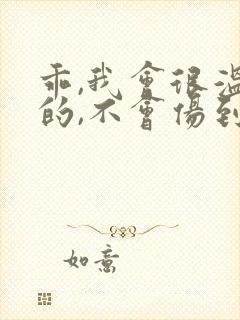 乖,我會很溫
的,不會傷到
如意